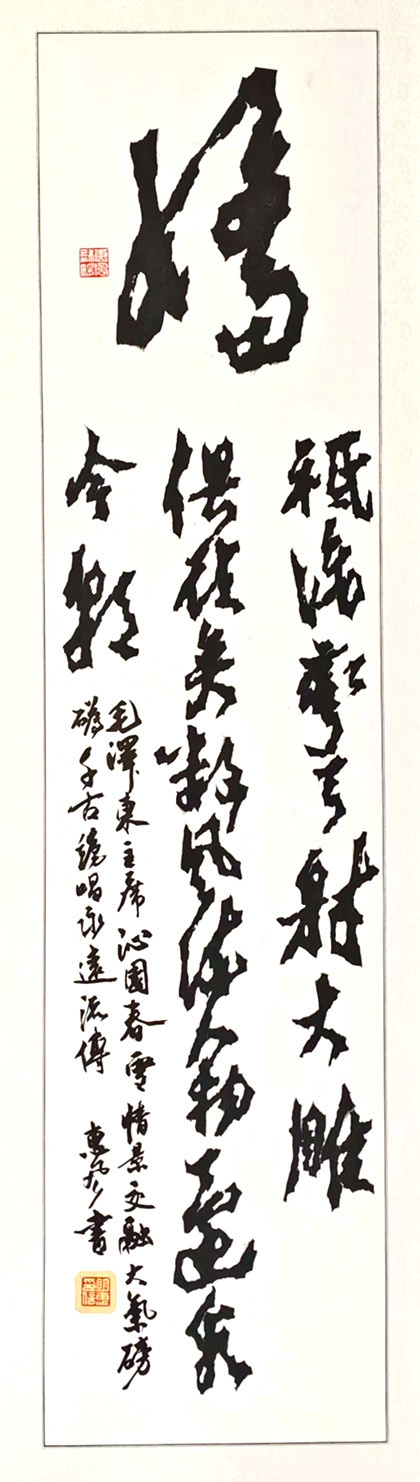 祗識彎弓射大雕
俱往矣數風流人物還看
今朝
毛澤東主席沁園春雪情景交融大氣磅
礴千古絶唱永遠流傳
書